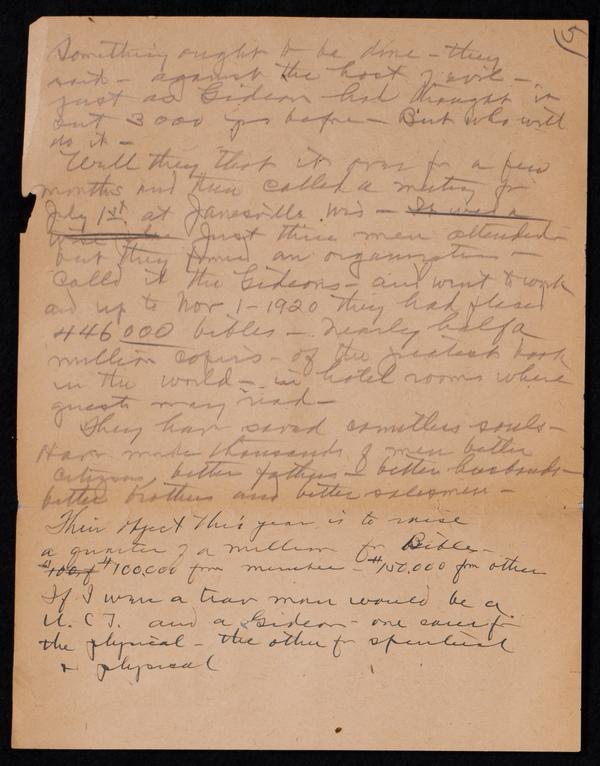 5
Something ought to be done - they
said - against the host of evil -
just as Gideon had thought it
out 3000 yrs before - But who will
do it -
Well they that it over for a few
months and then called a meeting for
July 1st at Janesville Wis - It was a
Just three men attended -
but they formed an organization -
Called it the Gideons - and went to work
and up to Nov 1 - 1920 they had placed
446000 bibles - nearly half a
million copies - of the greatest book
in the world - in hotel rooms where
guests may read -
They have saved countless souls -
Have made thousands of men better
citizens, better fathers - better husbands -
better brothers and better salesmen -
Their object this year is to raise
a quarter of a million for Bibles -
$100,000 from members - $150,000 from other
If I were a trav man would be a
U.C.T. and a Gideon - one cares for
the physical - the other for spiritual
& physical